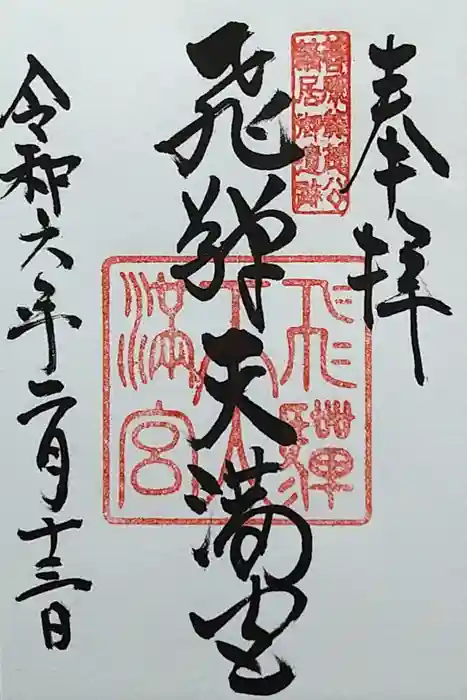 奉拝
飛騨天満宮
飛騨
天
満宮
令和六年二月十三日